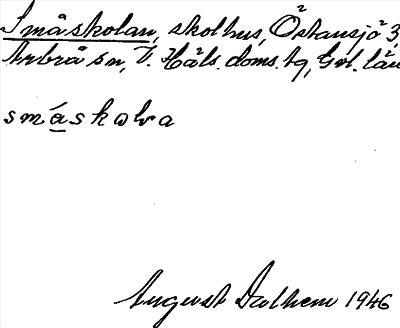 Småskolan, skolhus, Östansjö 3,
Arbrå sn, V. Häls. doms. tg, Gvl. län
småskolva
August Dalhem 1946